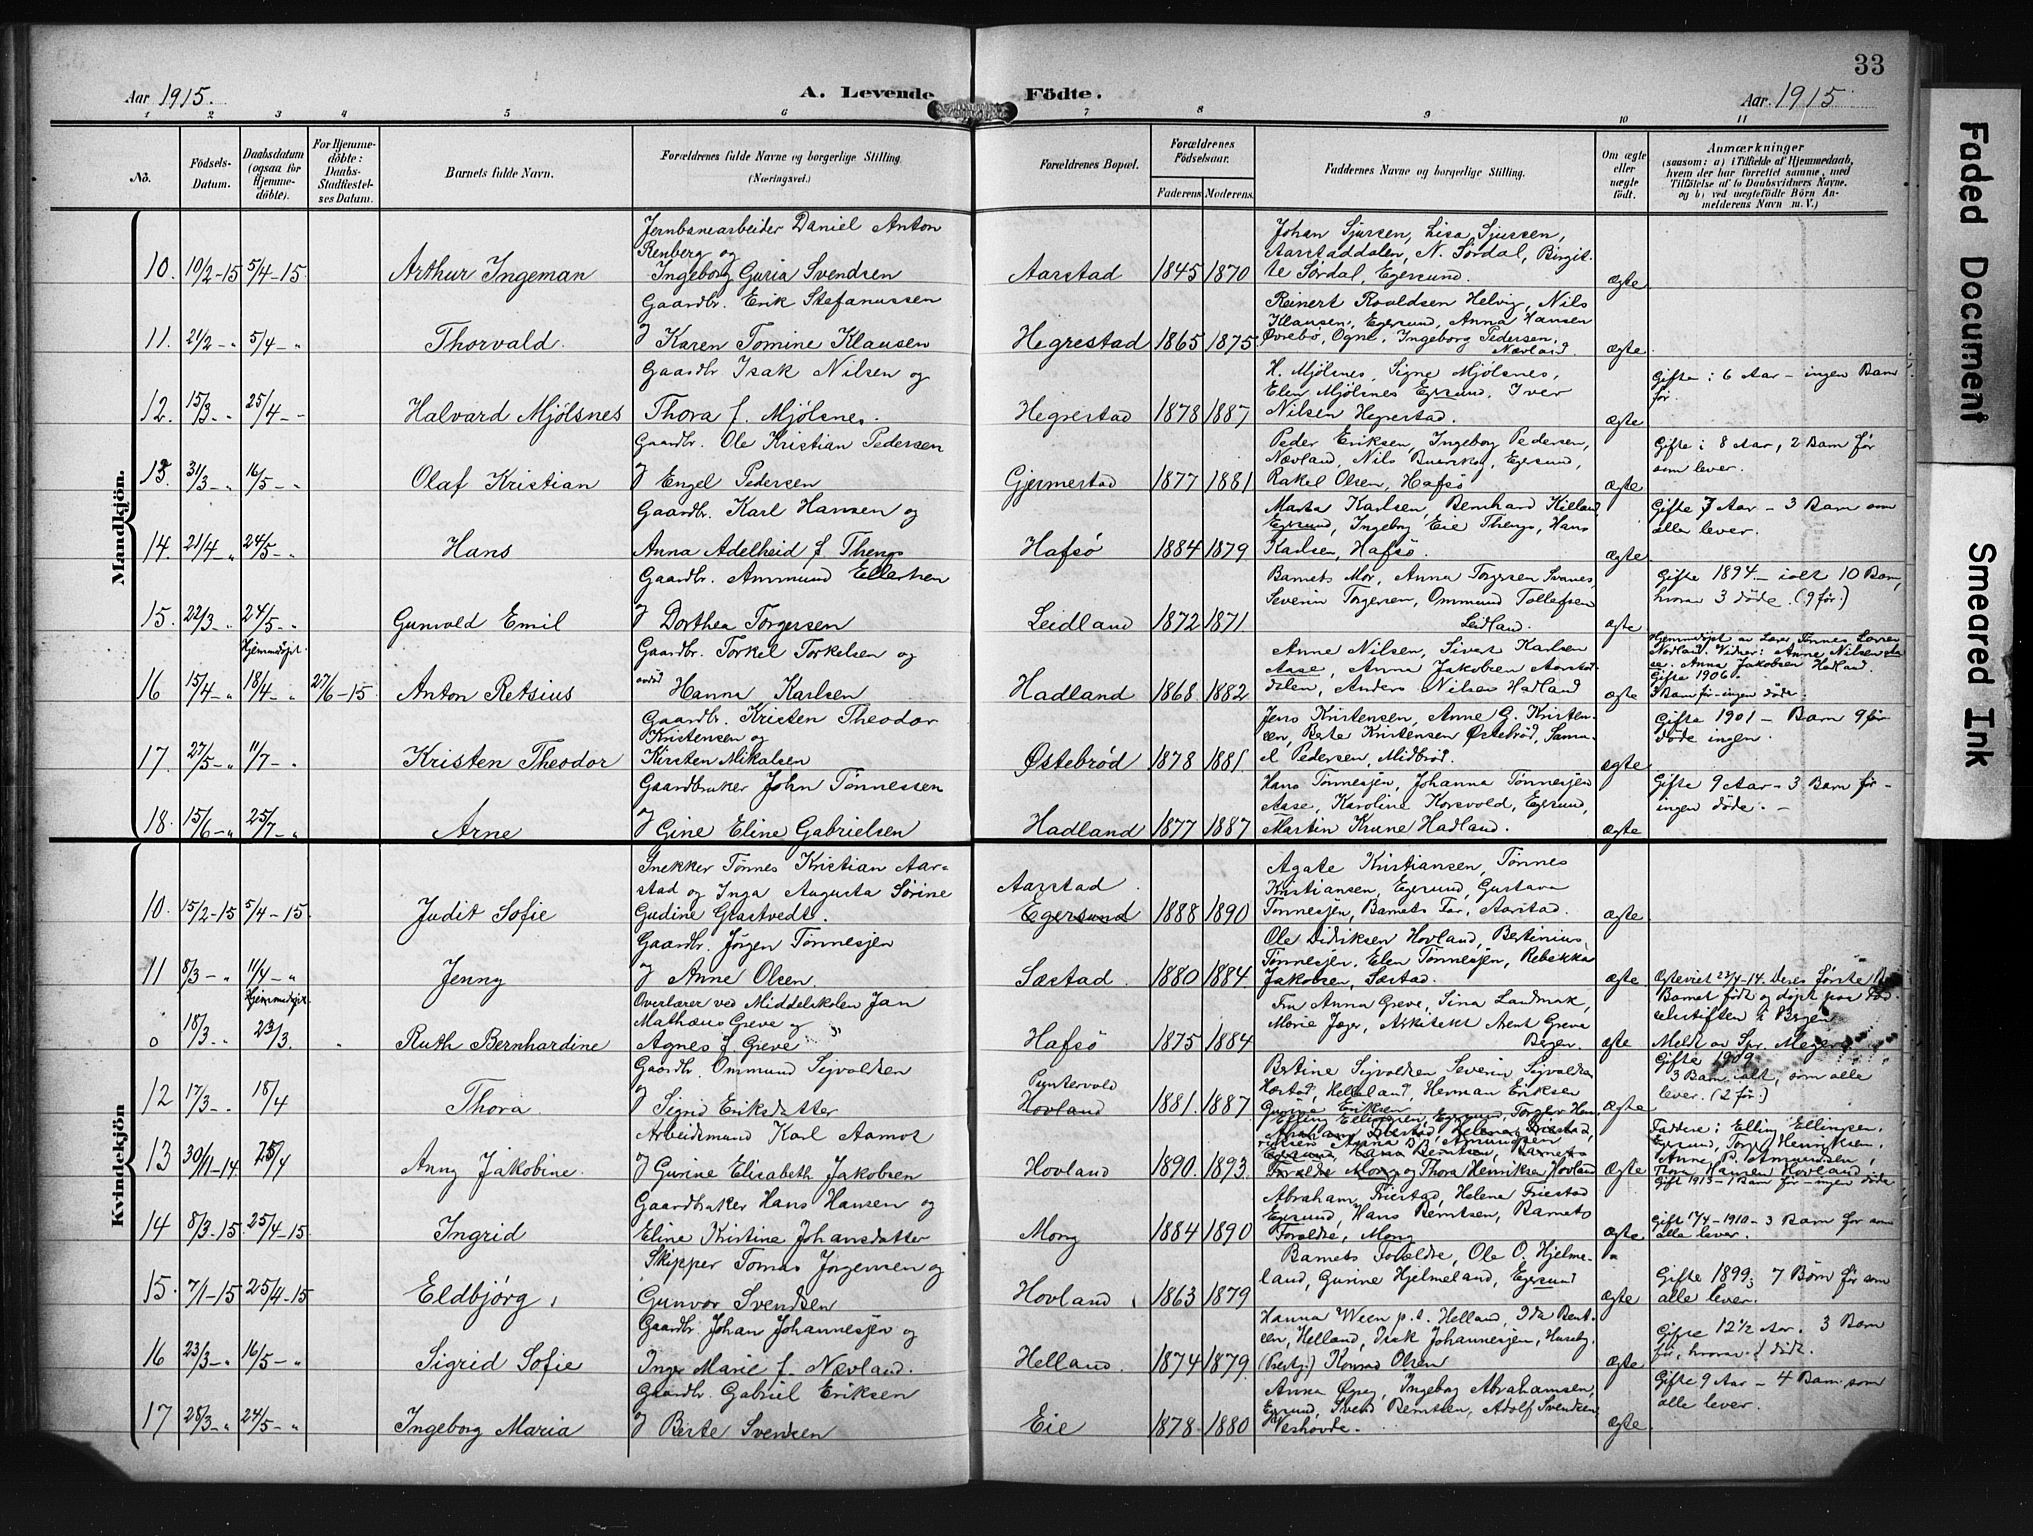 33
Aar 1915. A. Levende Födte. Aar 1915
1 2 3 4 5 6 7 8 9 10 11
No.
Födsels-
Datum.
Daabsdatum
(ogsaa for
Hjemme-
döbte).
For Hjemme-
döbte:
Daabs-
Stadfæstel-
ses Datum.
Barnets fulde Navn.
Forældrenes fulde Navne og borgerlige Stilling.
(Næringsvei.)
Forældrenes Bopæl.
Forældrenes
Födselsaar.
Faderens Moderens
Faddernes Navne og borgerlige Stilling.
Om ægte
eller
uægte
födt.
Anmærkninger
(saasom: a) i Tilfælde af Hjemmedaab,
hvem der har forrettet samme, med
Tilföielse af to Daabsvidners Navne.
og b) ved uægtefödte Börn An-
melderens Navn m. V.)
Mandkjön.
10. 10/2-15 5/4-15 Arthur Ingeman
Jernbanearbeider Daniel Anton
Renberg og
Ingeborg Guria Svendsen
Aarstad 1845 1870
Johan Sjursen, Lisa Sjursen,
Aarstaddalen, N. Sørdal, Birgit-
te Sørdal, Egersund.
ægte
11. 21/2 - " 5/4 - " Thorvald
Gaardbr. Erik Stefanussen
& Karen Tomine Klausen
Hegrestad 1865 1875
Reinert Roaldsen Helvig, Nils
Klausen, Egersund, Anna Hansen
Øvrebø, Ogne, Ingeborg Pedersen,
Nævland.
ægte
12. 15/3 - " 25/4 - " Halvard Mjölsnes
Gaardbr Isak Nilsen og
Thora f. Mjølsnes.
Hegrestad 1878 1887
H. Mjølsnes, Signe Mjølsnes,
Elen Mjølsnes Egersund, Iver
Nilsen Hegrestad.
ægte
Gifte i 6 Aar - ingen Barn
før.
13. 31/3 - " 16/5 - " Olaf Kristian
Gaardbr. Ole Kristian Pedersen
& Engel Pedersen
Gjermestad 1877 1881
Peder Eriksen, Ingeborg Pedersen,
Nævland, Nils Egersund,
Rakel Olsen, Hafsø
ægte
Gifte i 8 Aar, 2 Barn før
som lever.
14. 21/4 - " 24/5 - " Hans
Gaardbr. Karl Hansen og
Anna Adelheid f Thengs
Hafsø 1884 1879
Marta Karlsen, Bernhard Kielland
Egersund, Ingeborg Eie Thengs, Hans
Karlsen, Hafsø.
ægte
Gifte 7 Aar - 3 Barn som
alle lever.
15. 22/3 - " 24/5 - " Gunvald Emil
Gaardbr. Ammund Ellertsen
& Dorthea Torgersen
Leidland 1872 1871
Barnets Mor, Anna Torgersen Svanes,
Severin Torgersen, Ommund Tollefsen
Leidland.
ægte
Gifte 1894 - ialt 10 Barn,
hvorav 3 døde. (9 før.)
Hjemmedøpt
16 15/4 - " 18/4 - " 27/6-15 Anton Retsius
Gaardbr. Torkel Torkelsen og
Hanna Karlsen
Hadland 1868 1882
Anne Nilsen, Sivert Karlsen
Aase, Anna Jakobsen Aarstad-
dalen, Anders Nilsen Hadland
ægte
Hjemmedøpt av Lærer Tønnes
Vidner: Anne Nilsen Aa-
se. Anna Jakobsen Hadland.
Gifte 1906.
3 Barn før - ingen døde.
17. 27/5 - " 11/7 - " Kristen Theodor
Gaardbr. Kristen Theodor
Kristensen og
Kirsten Mikalsen
Østebrød 1878 1881.
Jens Kristensen, Anne G. Kristen-
sen, Berte Kristensen Østebrød, Samu-
el Pedersen, Midbrød.
ægte
Gifte 1901 - Barn 9 før
døde ingen.
18. 15/6 - " 25/7 - " Arne
Gaardbruker John Tønnessen
& Gine Eline Gabrielsen
Hadland 1877 1887
Hans Tønnesjen, Johanna Tønnesjen
Aase, Karoline Korsvold, Egersund,
Martin Krune Hadland.
ægte
Gifte 9 Aar - 3 Barn før -
ingen døde. -
Kvindekjön
10. 15/2-15 5/4-15. Judit Sofie
Snekker Tønnes Kristian Aar-
stad og Inga Augusta Sørine
Gudine Grastvedt.
Aarstad
Egersund 1888 1890
Agate Kristiansen, Tønnes
Kristiansen, Egersund, Gustava
Tønnesjen, Barnets Far, Aarstad.
ægte
11 8/3 - " 11/4 - " Jenny
Gaardbr. Jørgen Tønnesjen
& Anne Olsen.
Sæstad 1880 1884
Ole Didriksen Hovland, Bertinius
Tønnesjen, Elen Tønnesjen, Rebekka
Jakobsen, Sæstad.
ægte
Hjemmedøpt
o 18/3 - " 23/3. Ruth Bernhardine
Overlærer ved Middelskolen Jan
Mathæus Greve og
Agnes f. Greve
Hafsø 1875 1884
Fru Anna Greve, Sina Landmak,
Marie Jæger, Arkitekt Arent Greve
Bergen.
ægte
Ægteviet 22/4-14. Deres første
Barnet født og døpt paa Fød-
selsstiften i Bergen
Meldt av Spr. Meyer
12 17/3 - " 18/4 Thora
Gaardbr. Ommund Sigvaldsen
& Sigrid Eriksdatter
Puntervold
Hovland 1881. 1887
Bertine Sigvaldsen Severin Sigvaldsen
Hæstad, Helleland, Herman Eriksen
Gurine Eriksen
ægte
Gifte 1909
3 Barn ialt, som alle
lever. (2 før.)
13 30/11-14 25/4 Anny Jakobine.
Arbeidsmand Karl Aamot
& Gurine Elisabeth Jakobsen
Hovland 1890. 1893.
Elling Ellingsen, Egersund, Torger Hen-
riksen, Anna B. Amundsen
Thora Henriksen Hovland
ægte
Faddere: Elling Ellingsen,
Egersund, Torger Henriksen,
Anne P. Amundsen,
Thora Hansen Hovland
Gift 1913 - 1 Barn før - ingen døde
14 8/3-15. 25/4-15 Ingrid
Gaardbruker Hans Hansen og
Eline Kristine Johansdatter
Mong 1884 1890
Abraham Friestad, Helene Friestad
Egersund, Hans Berntsen, Barnets
Foraldre, Mong
ægte
Gift 17/4-1910 - 3 Barn før som
alle lever.
15. 7/1-15 25/4-15 Eldbjørg,
Skipper Tomas Jørgensen og
Gunvor Svendsen
Hovland 1863 1879
Barnets Foraldre, Ole O. Hjelme-
land, Gurine Hjelmeland, Egersund
ægte
Gifte 1899; 7 Børn før som
alle lever.
16 23/3 - " 16/5 - " Sigrid Sofie
Gaardbr. Johan Johannesjen og
Inger Marie f. Nævland.
Helland. 1874 1879.
Hanna Ween p.t. Helland, Ida Bent-
sen, Helland, Isak Johannesjen, Huseby.
Konrad Olsen
ægte
Gifte 12 1/2 Aar. 3 Barn
før, hvorav 1 død.
17 28/3 - " 24/5 - " Ingeborg Maria
Gaardbr. Gabriel Eriksen
& Berte Svendsen
Eie 1878 1880
Anna Ingeborg Abrahamsen,
Egrsund, Svend Berntsen, Adolf Svendsen
ægte
Gifte 9 Aar - 4 Barn som
alle lever.
Faded Document
Smeared Ink